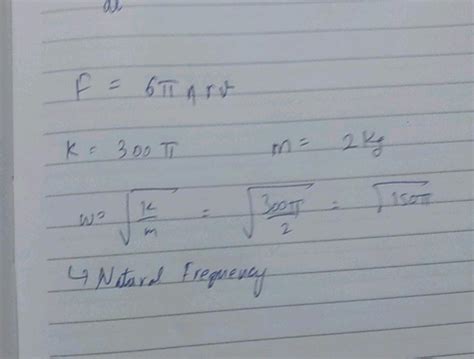 F = 6π η r v
K = 300 π m = 2 Kg
w = √(K/m) = √(300π/2) = √150π
↳ Natural Frequency